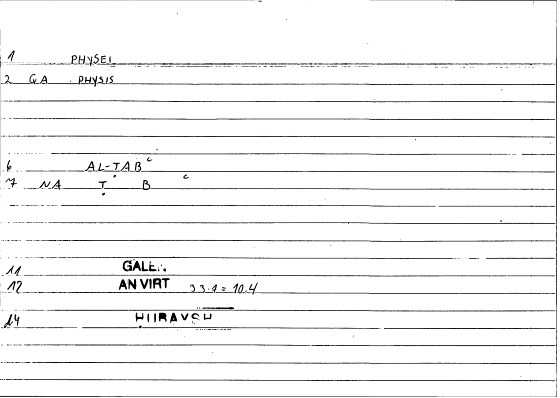 1 PHYSEI
2 GA PHYSIS
6 AL-ṬABᶜ
7 NA Ṭ B ᶜ
11 GALE
12 AN VIRT 33.1 = 10.4
14